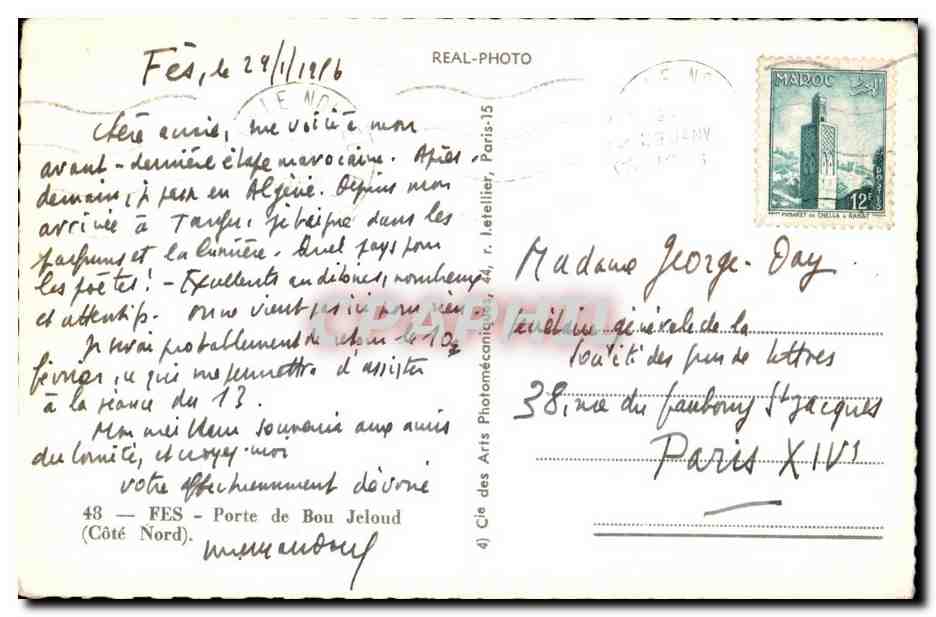 REAL-PHOTO
Fès, le 29/1/1956
Chère amie, me voilà à mon
avant-dernière étape marocaine. Après-
demain, je passe en Algérie. Depuis mon
arrivée à Tanger je baigne dans les
parfums et la lumière. Quel pays pour
les poètes! - Excellents auditoires, nombreux
et attentifs. On ne vient pas ici pour rien.
Je serai probablement de retour le 10
février, ce qui me permettra d'assister
à la séance du 13.
Mon meilleur souvenir aux amis
du Comité, et croyez-moi
votre affectueusement dévoué
48 — FES - Porte de Bou Jeloud
(Côté Nord).
4) Cie des Arts Photomécaniques, 44, r. Letellier, Paris-15
MAROC
POSTES
12F
MINARET DE CHELLA A RABAT
Madame George-Day
Secrétaire générale de la
Société des gens de lettres
38, rue du faubourg St Jacques
Paris XIVe
CPAPHIL